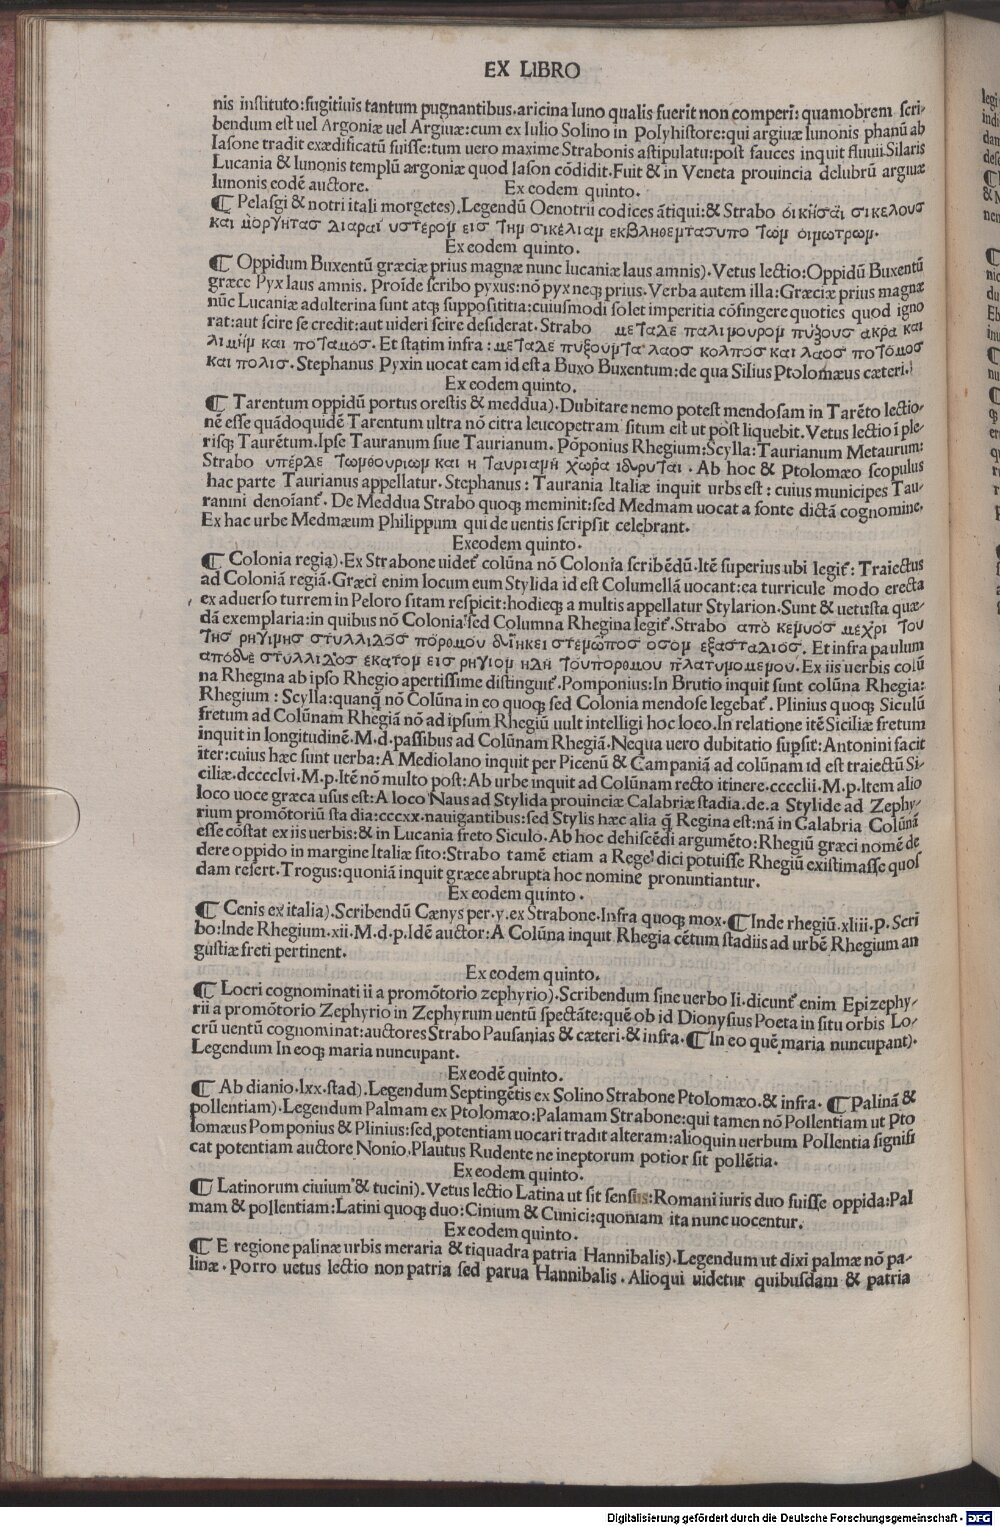 EX LIBRO
nis instituto:fugitiuis tantum pugnantibus.aricina Iuno qualis fuerit non comperi: quamobrem scri-
bendum est uel Argoniæ uel Argiuæ:cum ex Iulio Solino in Polyhistore:qui argiuæ Iunonis phanū ab
Iasone tradit exædificatū fuisse:tum uero maxime Strabonis astipulatu:post fauces inquit fluuii.Silaris
Lucania & Iunonis templū argoniæ quod Iason cōdidit.Fuit & in Veneta prouincia delubrū argiuæ
Iunonis eodē auctore. Ex eodem quinto.
¶ Pelasgi & notri itali morgetes).Legendū Oenotrii codices ātiqui:& Strabo οἰκῆσαι σικελουσ
και μοργητασ διαραι υστερομ εισ τημ σικελιαμ εκβληθεμτασυπο τωμ οιμωτρωμ.
Ex eodem quinto.
¶ Oppidum Buxentū græciæ prius magnæ nunc lucaniæ laus amnis).Vetus lectio:Oppidū Buxentū
græce Pyx laus amnis. Proīde scribo pyxus:nō pyx neq; prius.Verba autem illa:Græciæ prius magnæ
nūc Lucaniæ adulterina sunt atq; supposititia:cuiusmodi solet imperitia cōfingere quoties quod igno
rat:aut scire se credit:aut uideri scire desiderat.Strabo μεταδε παλιμουρομ πυξουσ ακρα και
λιμημ και ποταμοσ. Et statim infra : μεταδε πυξουμτα λαοσ κολποσ και λαοσ ποτομοσ
και πολισ.Stephanus Pyxin uocat eam id est a Buxo Buxentum:de qua Silius Ptolomæus cæteri.
Ex eodem quinto.
¶ Tarentum oppidū portus orestis & meddua).Dubitare nemo potest mendosam in Tarēto lectio-
nē esse quādoquidē Tarentum ultra nō citra leucopetram situm est ut post liquebit.Vetus lectio ī ple-
risq; Taurētum.Ipse Tauranum siue Taurianum. Pōponius Rhegium:Scylla:Taurianum Metaurum:
Strabo υπερδε τωμθουριωμ και η ταυριαμη χωρα ιδρυται . Ab hoc & Ptolomæo scopulus
hac parte Taurianus appellatur.Stephanus: Taurania Italiæ inquit urbs est : cuius municipes Tau-
ranini denoīant. De Meddua Strabo quoq; meminit:sed Medmam uocat a fonte dictā cognomine.
Ex hac urbe Medmæum Philippum qui de uentis scripsit celebrant.
Ex eodem quinto.
¶ Colonia regia).Ex Strabone uidet colūna nō Colonia scribēdū.Itē superius ubi legit : Traiectus
ad Coloniā regiā.Græci enim locum eum Stylida id est Columellā uocant:ea turricule modo erecta
ex aduerso turrem in Peloro sitam respicit:hodieq; a multis appellatur Stylarion.Sunt & uetusta quæ-
dā exemplaria:in quibus nō Colonia sed Columna Rhegina legit.Strabo απο κεμυοσ μεχρι του
τησ ρηγιμησ στυλλιδοσ πορθμου διηκει στεμωποσ οσομ εξασταδιοσ. Et infra paulum
αποδε στυλλιδοσ εκατομ εισ ρηγιομ ηδη τουπορθμου πλατυμομεμου.Ex iis uerbis colū
na Rhegina ab ipso Rhegio apertissime distinguit.Pomponius:In Brutio inquit sunt colūna Rhegia:
Rhegium : Scylla:quanq̄ nō Colūna in eo quoq; sed Colonia mendose legebat. Plinius quoq; Siculū
fretum ad Colūnam Rhegiā nō ad ipsum Rhegiū uult intelligi hoc loco.In relatione itē Siciliæ fretum
inquit in longitudinē.M.d.passibus ad Colūnam Rhegiā.Nequa uero dubitatio supsit:Antonini facit
iter:cuius hæc sunt uerba:A Mediolano inquit per Picenū & Campaniā ad colūnam id est traiectū Si-
ciliæ.dcccclvi.M.p.Itē nō multo post:Ab urbe inquit ad Colūnam recto itinere.ccccliI.M.p.Item alio
loco uoce græca usus est:A loco Naus ad Stylida prouinciæ Calabriæ stadia.de.a Stylide ad Zephy-
rium promōtoriū sta dia:cccxx.nauigantibus:sed Stylis hæc alia q̄ Regina est:nā in Calabria Colūnā
esse cōstat ex iis uerbis:& in Lucania freto Siculo.Ab hoc dehiscēdi argumēto:Rhegiū græci nomē de
dere oppido in margine Italiæ sito:Strabo tamē etiam a Rege dici potuisse Rhegiū existimasse quos
dam refert.Trogus:quoniā inquit græce abrupta hoc nomine pronuntiantur.
Ex eodem quinto .
¶ Cenis ex italia).Scribendū Cænys per.y.ex Strabone.Infra quoq; mox.¶Inde rhegiū.xliii.p.Scri
bo:Inde Rhegium.xii.M.d.p.Idē auctor:A Colūna inquit Rhegia cētum stadiis ad urbē Rhegium an
gustiæ freti pertinent.
Ex eodem quinto.
¶ Locri cognominati ii a promōtorio zephyrio).Scribendum sine uerbo Ii.dicunt enim Epizephy-
rii a promōtorio Zephyrio in Zephyrum uentū spectāte:quē ob id Dionysius Poeta in situ orbis Lo-
crū uentū cognominat:auctores Strabo Pausanias & cæteri.& infra.¶In eo quē maria nuncupant).
Legendum In eoq; maria nuncupant.
Ex eodē quinto.
¶ Ab dianio.lxx.stad).Legendum Septingētis ex Solino Strabone Ptolomæo.& infra. ¶Palinā &
pollentiam).Legendum Palmam ex Ptolomæo:Palamam Strabone:qui tamen nō Pollentiam ut Pto
lomæus Pomponius & Plinius:sed potentiam uocari tradit alteram:alioquin uerbum Pollentia signifi
cat potentiam auctore Nonio.Plautus Rudente ne ineptorum potior sit pollētia.
Ex eodem quinto.
¶ Latinorum ciuium & tucini).Vetus lectio Latina ut sit sensus:Romani iuris duo fuisse oppida:Pal
mam & pollentiam:Latini quoq; duo:Cinium & Cunici:quoniam ita nunc uocentur.
Ex eodem quinto.
¶ E regione palinæ urbis meraria & tiquadra patria Hannibalis).Legendum ut dixi palmæ nō pa-
linæ.Porro uetus lectio non patria sed parua Hannibalis.Alioqui uidetur quibusdam & patria
Digitalisierung gefördert durch die Deutsche Forschungsgemeinschaft - DFG